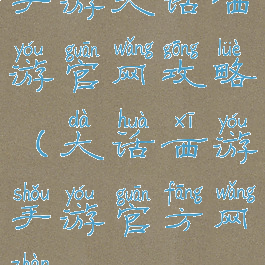 手游大话西
yóu guān wǎng gōng lüè
游官网攻略
dà huà xī yóu
(大话西游
shǒu yóu guān fāng wǎng
手游官方网
zhàn